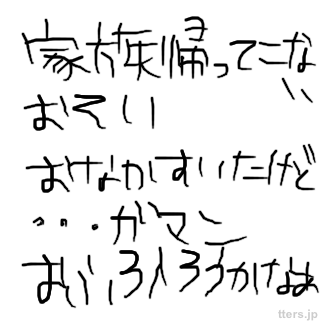 家族帰ってこな
い
おそい
おなかすいたけど
・・・ガマン
おふろ入ろうかなぁ
tters.jp